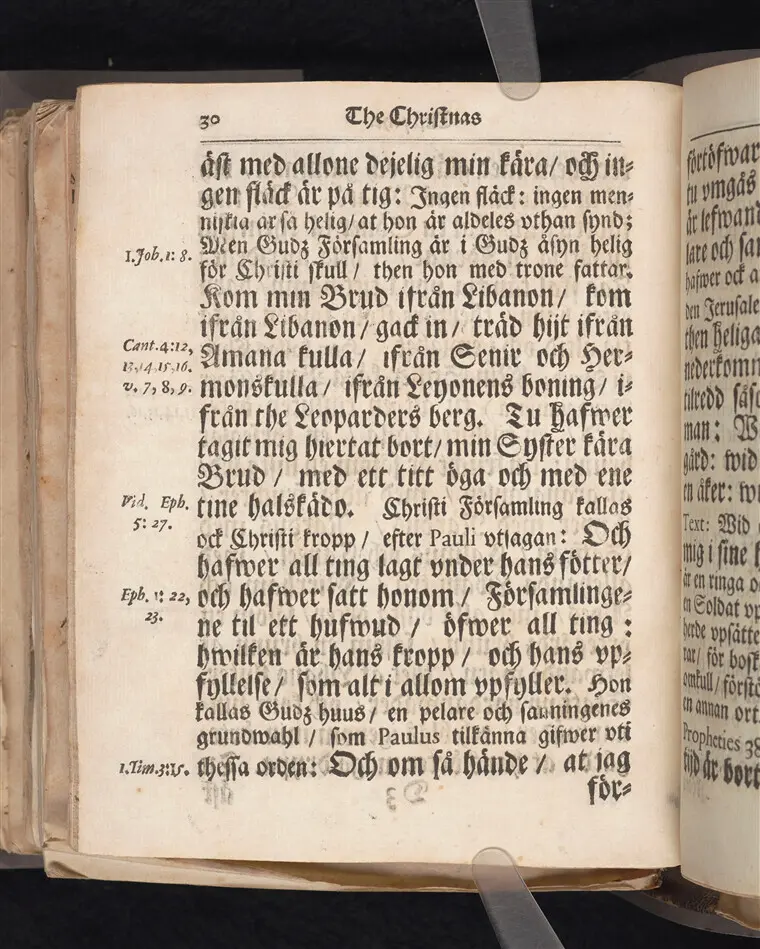 30 The Christnas
äst med allone dejelig min kära/ och in-
gen fläck är på tig: Ingen fläck: ingen men-
niskia är så helig/ at hon är aldeles vthan synd;
1. Joh. 1: 8. Men Gudz Församling är i Gudz åsyn helig
för Christi skull/ then hon med trone fattar.
Kom min Brud ifrån Libanon/ kom
ifrån Libanon/ gack in/ träd hijt ifrån
Cant. 4: 12, Amana kulla/ ifrån Senir och Her-
13, 14. 15. 16.
v. 7, 8, 9. monskulla/ ifrån Leyonens boning/ i-
från the Leoparders berg. Tu hafwer
tagit mig hiertat bort/ min Syster kära
Brud/ med ett titt öga och med ene
Vid. Eph. tine halskädo. Christi Församling kallas
5: 27.
ock Christi kropp/ efter Pauli vtsagan: Och
hafwer all ting lagt vnder hans fötter/
Eph. 1: 22, och hafwer satt honom/ Församlinge-
23.
ne til ett hufwud/ öfwer all ting:
hwilken är hans kropp/ och hans vp-
fyllelse/ som alt i allom vpfyller. Hon
kallas Gudz huus/ en pelare och sanningenes
grundwahl/ som Paulus tilkänna gifwer vti
1. Tim. 3: 15. thessa orden: Och om så hände/ at jag
för-
förtöfwar
tu vmgås
är lefwand
lare och san
hafwer ock a
den Jerusale
then heliga
nederkomm
tilredd såso
man: W
gård: wid
en åker: w
Text: Wid
mig i sine h
är en ringa o
en Soldat vp
herde vpsätte
rar/ för bosk
omkull/ förstö
en annan ort
Propheties 38
tijd är bort